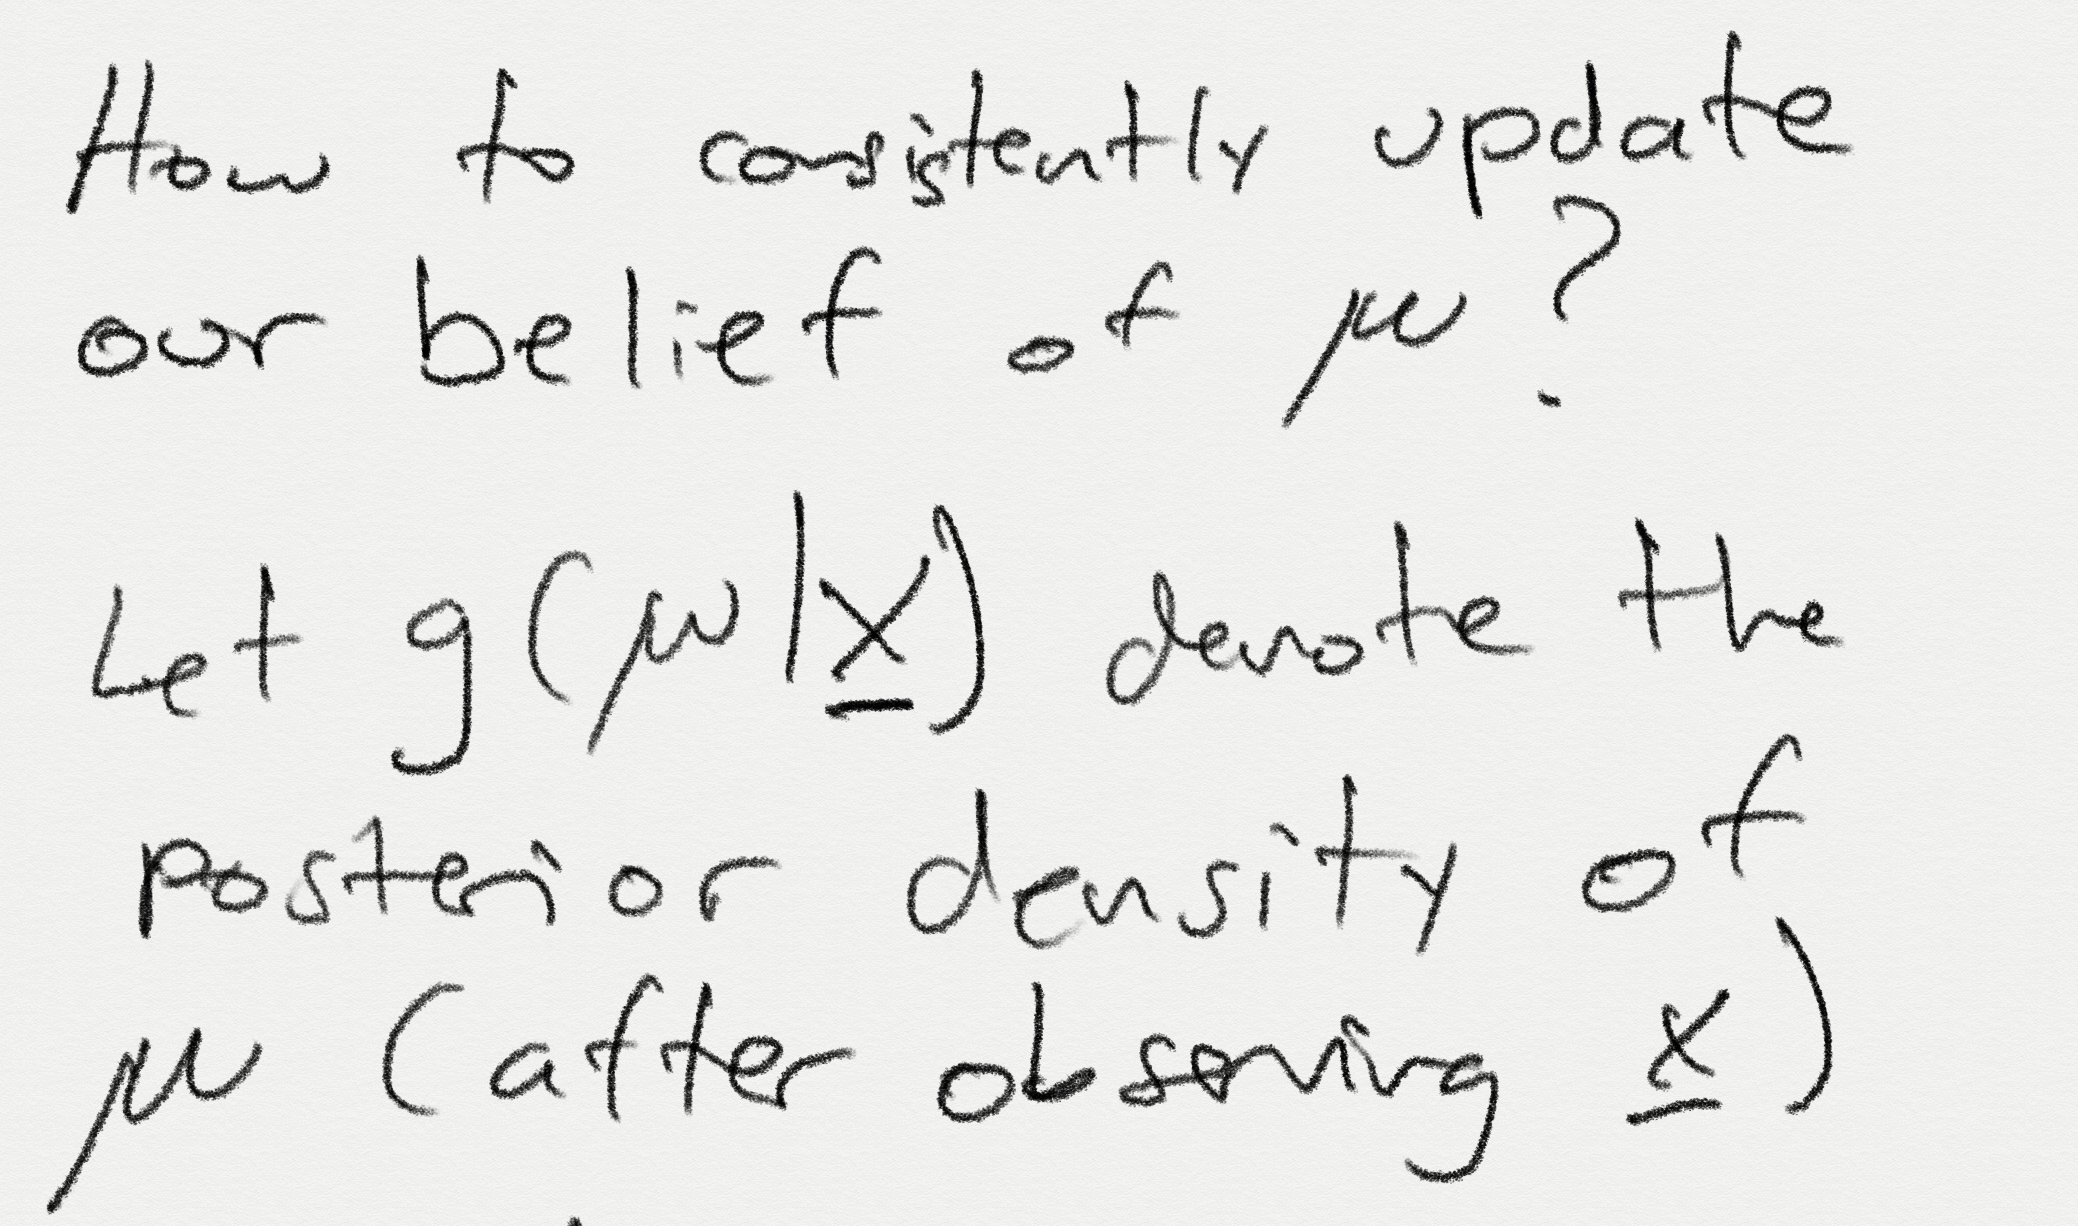 How to consistently update
our belief of μ?
Let g(μ|x̲) denote the
posterior density of
μ (after observing x̲)